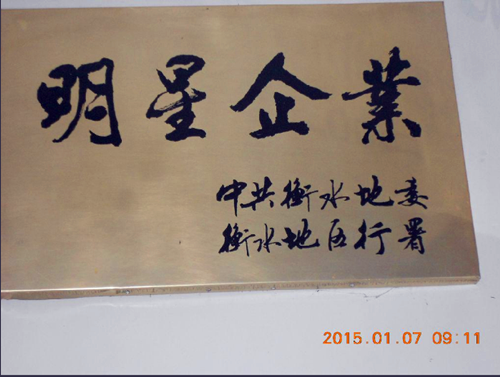 明星企業
中共衡水地委
衡水地区行署
2015.01.07 09:11